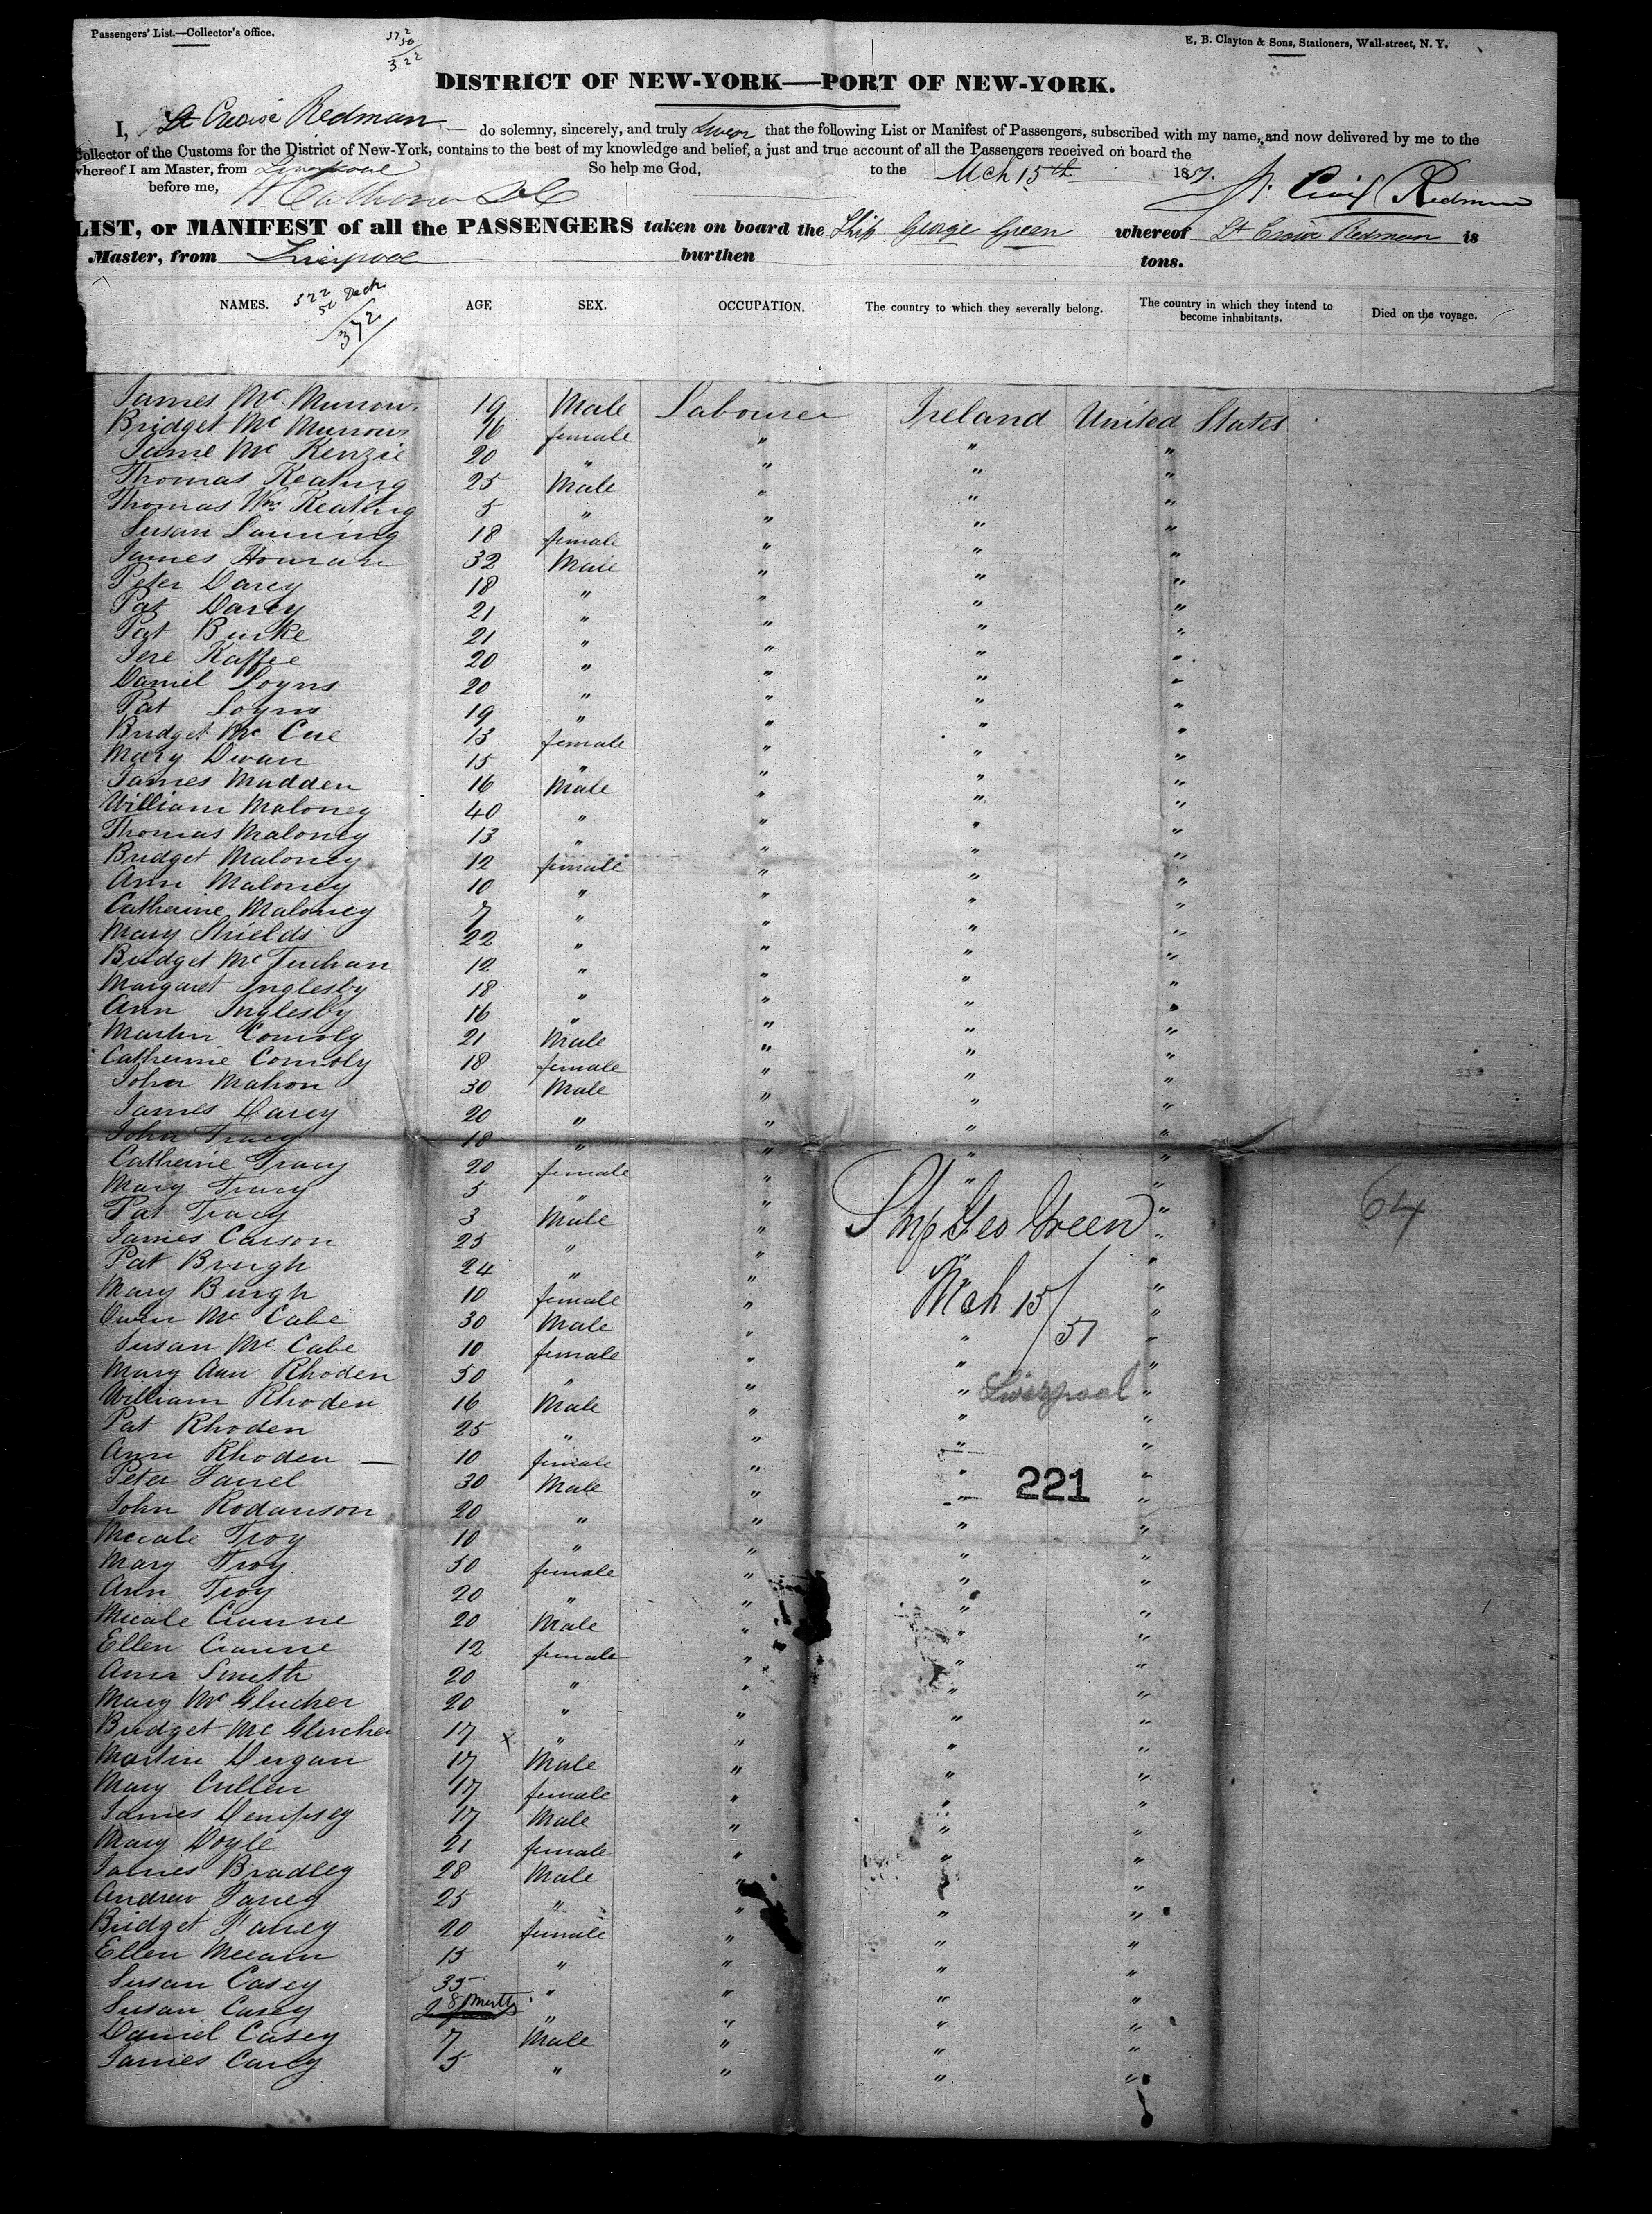 Passengers' List.—Collector's office.
372
50
322
E. B. Clayton & Sons, Stationers, Wall-street, N. Y.
DISTRICT OF NEW-YORK—PORT OF NEW-YORK.
I, St Croix Redman do solemny, sincerely, and truly Swear that the following List or Manifest of Passengers, subscribed with my name, and now delivered by me to the
Collector of the Customs for the District of New-York, contains to the best of my knowledge and belief, a just and true account of all the Passengers received on board the
whereof I am Master, from Liverpool So help me God, to the Mch 15th 1851. St. Croix Redman
before me,
LIST, or MANIFEST of all the PASSENGERS taken on board the Ship George Green whereof St Croix Redman is
Master, from Liverpool burthen tons.
NAMES. 322 50 Deck 372 AGE. SEX. OCCUPATION. The country to which they severally belong. The country in which they intend to become inhabitants. Died on the voyage.
James Mc Murrow 19 Male Labourer Ireland United States
Bridget Mc Murrow 16 female " " "
Jame Mc Kenzie 20 " " " "
Thomas Keating 25 Male " " "
Thomas Wm Keating 5 " " " "
Susan Lanning 18 female " " "
James Honran 32 Male " " "
Peter Darcy 18 " " " "
Pat Darcy 21 " " " "
Pat Burke 21 " " " "
Jere Kaffee 20 " " " "
Daniel Loyns 20 " " " "
Pat Loyns 19 " " " "
Bridget Mc Cue 13 female " " "
Mary Dwan 15 " " " "
James Madden 16 Male " " "
William Maloney 40 " " " "
Thomas Maloney 13 " " " "
Bridget Maloney 12 female " " "
Ann Maloney 10 " " " "
Catherine Maloney 7 " " " "
Mary Shields 22 " " " "
Bridget Mc 12 " " " "
Margaret Inglesby 18 " " " "
Ann Inglesby 16 " " " "
Martin Connoly 21 Male " " "
Catherine Connoly 18 female " " "
John Mahon 30 Male " " "
James Darcy 20 " " " "
John Tracy 18 " " " "
Catherine Tracy 20 female " " "
Mary Tracy 5 " " "
Pat Tracy 3 Male " "
Ship Geo Green
64
James Carson 25 " " "
Pat Brugh 24 " " " "
Mary Burgh 10 female " "
Mch 15/51
Owen Mc Cabe 30 Male " " "
Susan Mc Cabe 10 female " " "
Mary Ann Rhoden 50 " " " "
Liverpool
William Rhoden 16 Male " " "
Pat Rhoden 25 " " " "
Ann Rhoden — 10 female " " "
Peter Farrel 30 Male " " "
221
John Rodanson 20 " " " "
Micale Troy 10 " " " "
Mary Troy 50 female " " "
Ann Troy 20 " " " "
Micale Cranne 20 Male " " "
Ellen Cranne 12 female " " "
Ann Smith 20 " " " "
Mary Mc Glucher 20 " " " "
Bridget Mc Glucher 17 x " " " "
Martin Dugan 17 Male " " "
Mary Cullen 17 female " " "
James Dempsey 17 Male " " "
Mary Doyle 21 female " " "
James Bradley 28 Male " " "
Andrew Faney 25 " " " "
Bridget Faney 20 female " " "
Ellen 15 " " " "
Susan Casey 35 " " " "
Susan Casey 8 Mnths " " " "
Daniel Casey 7 Male " " "
James Casey 5 " " " "